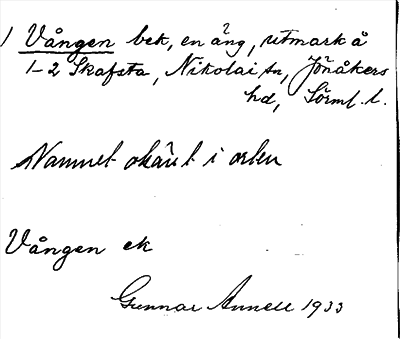 1 Vången bek, en äng, utmark å
1-2 Skafsta, Nikolai sn, Jönåkers
hd, Sörml. l.
Namnet okänt i orten
Vången ek
Gunnar Annell 1933